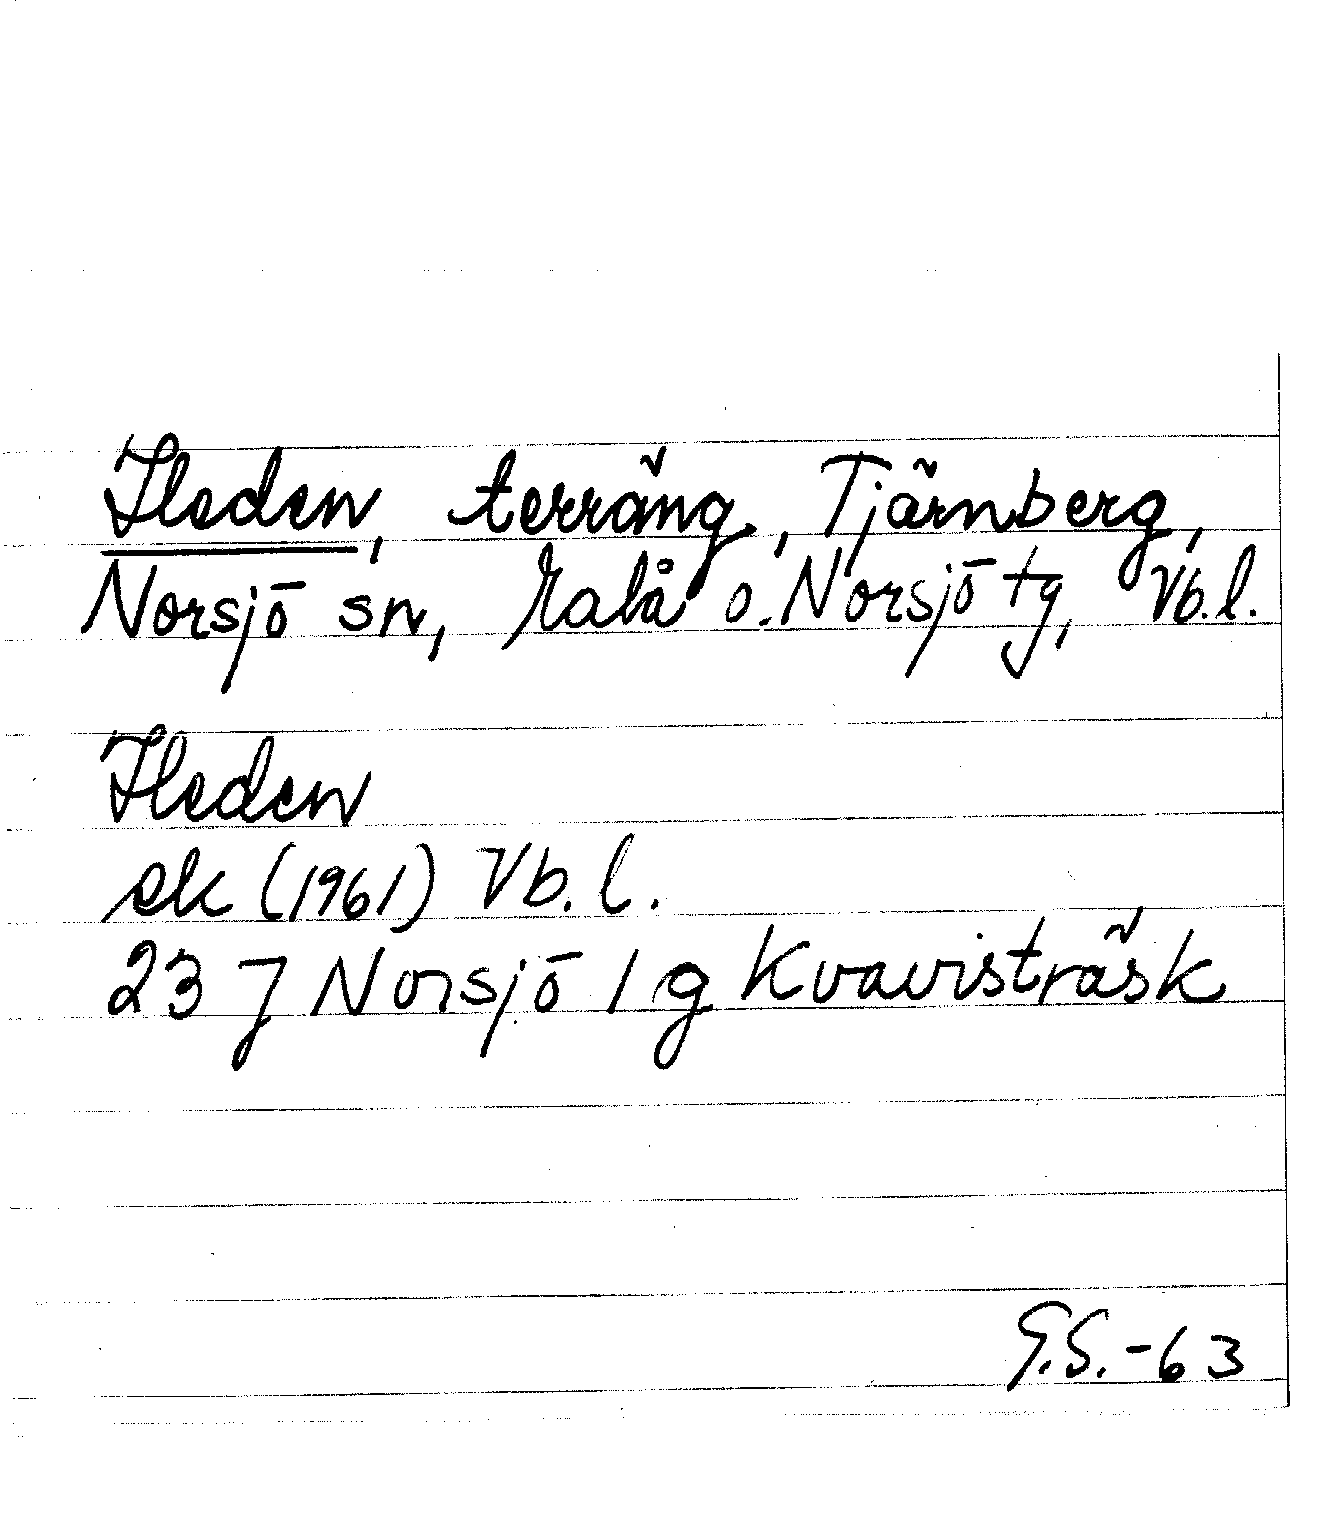 Heden, terräng, Tjärnberg,
Norsjö sn, Malå o. Norsjö tg, Vb.l.
Heden
ek (1961) Vb.l.
23 J Norsjö 1 g Kvavisträsk
G.S.-63